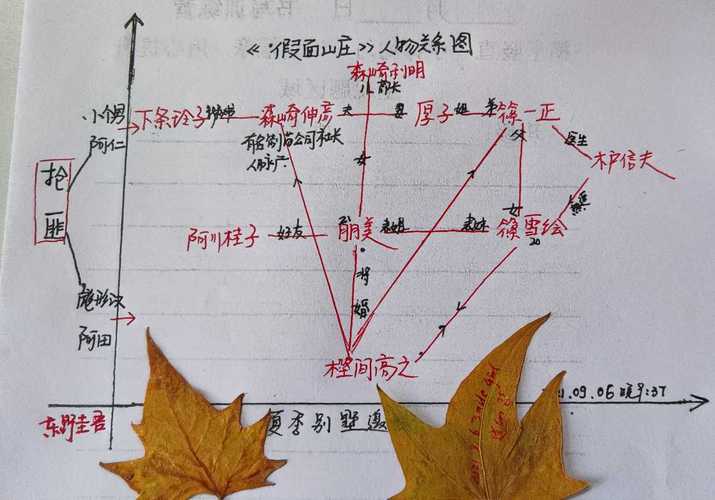 《假面山庄》人物关系图
森崎利明
小个男
阿仁
下条玲子
秘书
森崎伸彦
夫
妻
厚子
姐
弟
篠一正
有名制药公司社长
父
医生
木户信夫
抢匪
女
阿川桂子
好友
朋美
表姐
表妹
女
篠雪绘
20
将
婚
阿田
樫间高之
.09.06晚9:37
东野圭吾
夏季别墅邀